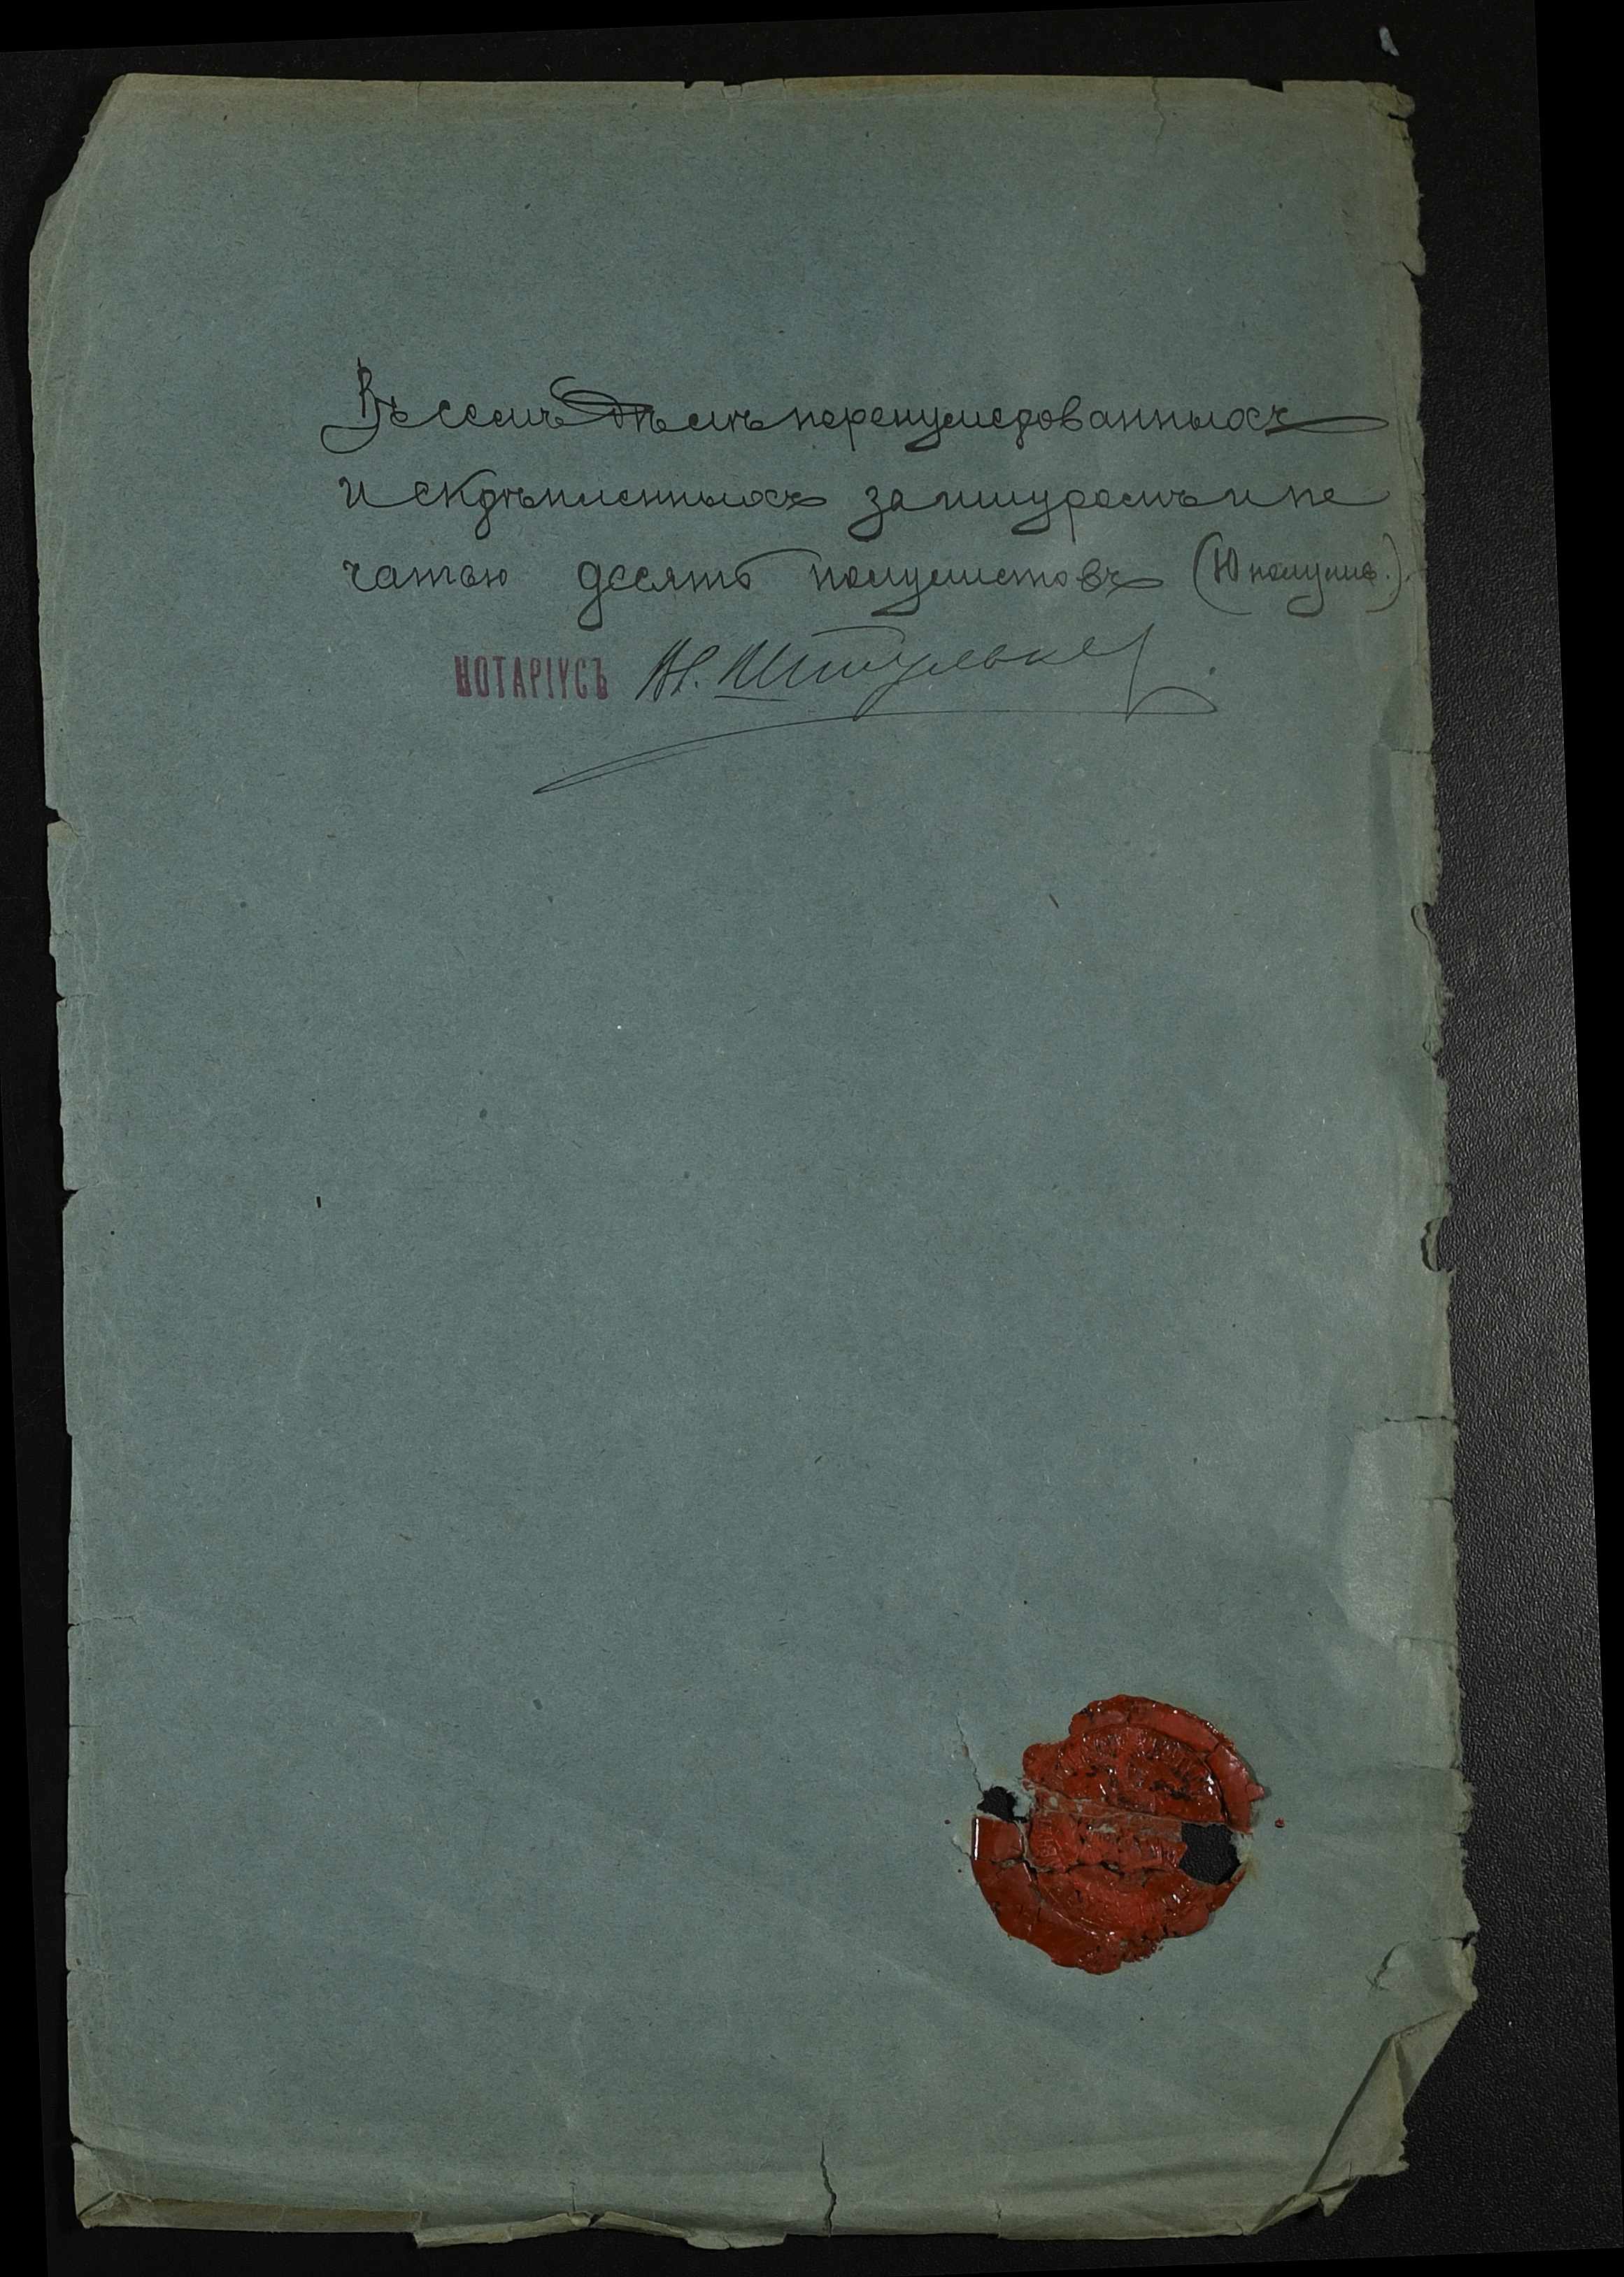 Въ семъ дѣлѣ перенумерованныхъ
и скрѣпленныхъ за шнуромъ и пе
чатью десять полулистовъ (10 полулис.).
НОТАРІУСЪ